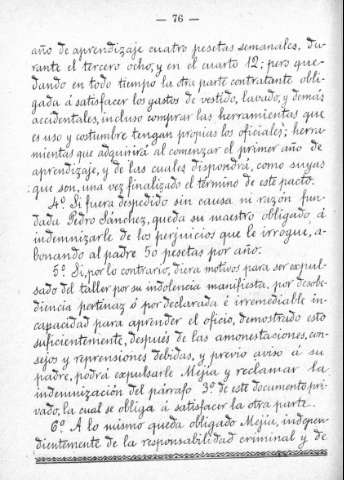 — 76 —
año de aprendizaje cuatro pesetas semanales, du-
rante el tercero ocho, y en el cuarto 12; pero que-
dando en todo tiempo la otra parte contratante obli-
gada á satisfacer los gastos de vestido, lavado, y demás
accidentales, incluso comprar las herramientas que
es uso y costumbre tengan propias los oficiales; herra-
mientas que adquirirá al comenzar el primer año de
aprendizaje, y de las cuales dispondrá, como suyas
que son, una vez finalizado el término de este pacto.
4.º Si fuera despedido sin causa ni razón fun-
dada Pedro Sánchez, queda su maestro obligado á
indemnizarle de los perjuicios que le irrogue, a-
bonando al padre 50 pesetas por año.
5.º Si, por lo contrario, diera motivos para ser expul-
sado del taller por su indolencia manifiesta, por desobe-
diencia pertinaz ó por declarada é irremediable in-
capacidad para aprender el oficio, demostrado esto
suficientemente, después de las amonestaciones, con-
sejos y reprensiones debidas, y previo aviso á su
padre, podrá expulsarle Mejía y reclamar la
indemnización del párrafo 3.º de este documento pri-
vado, la cual se obliga á satisfacer la otra parte.
6.º A lo mismo queda obligado Mejía, indepen-
dientemente de la responsabilidad criminal y de